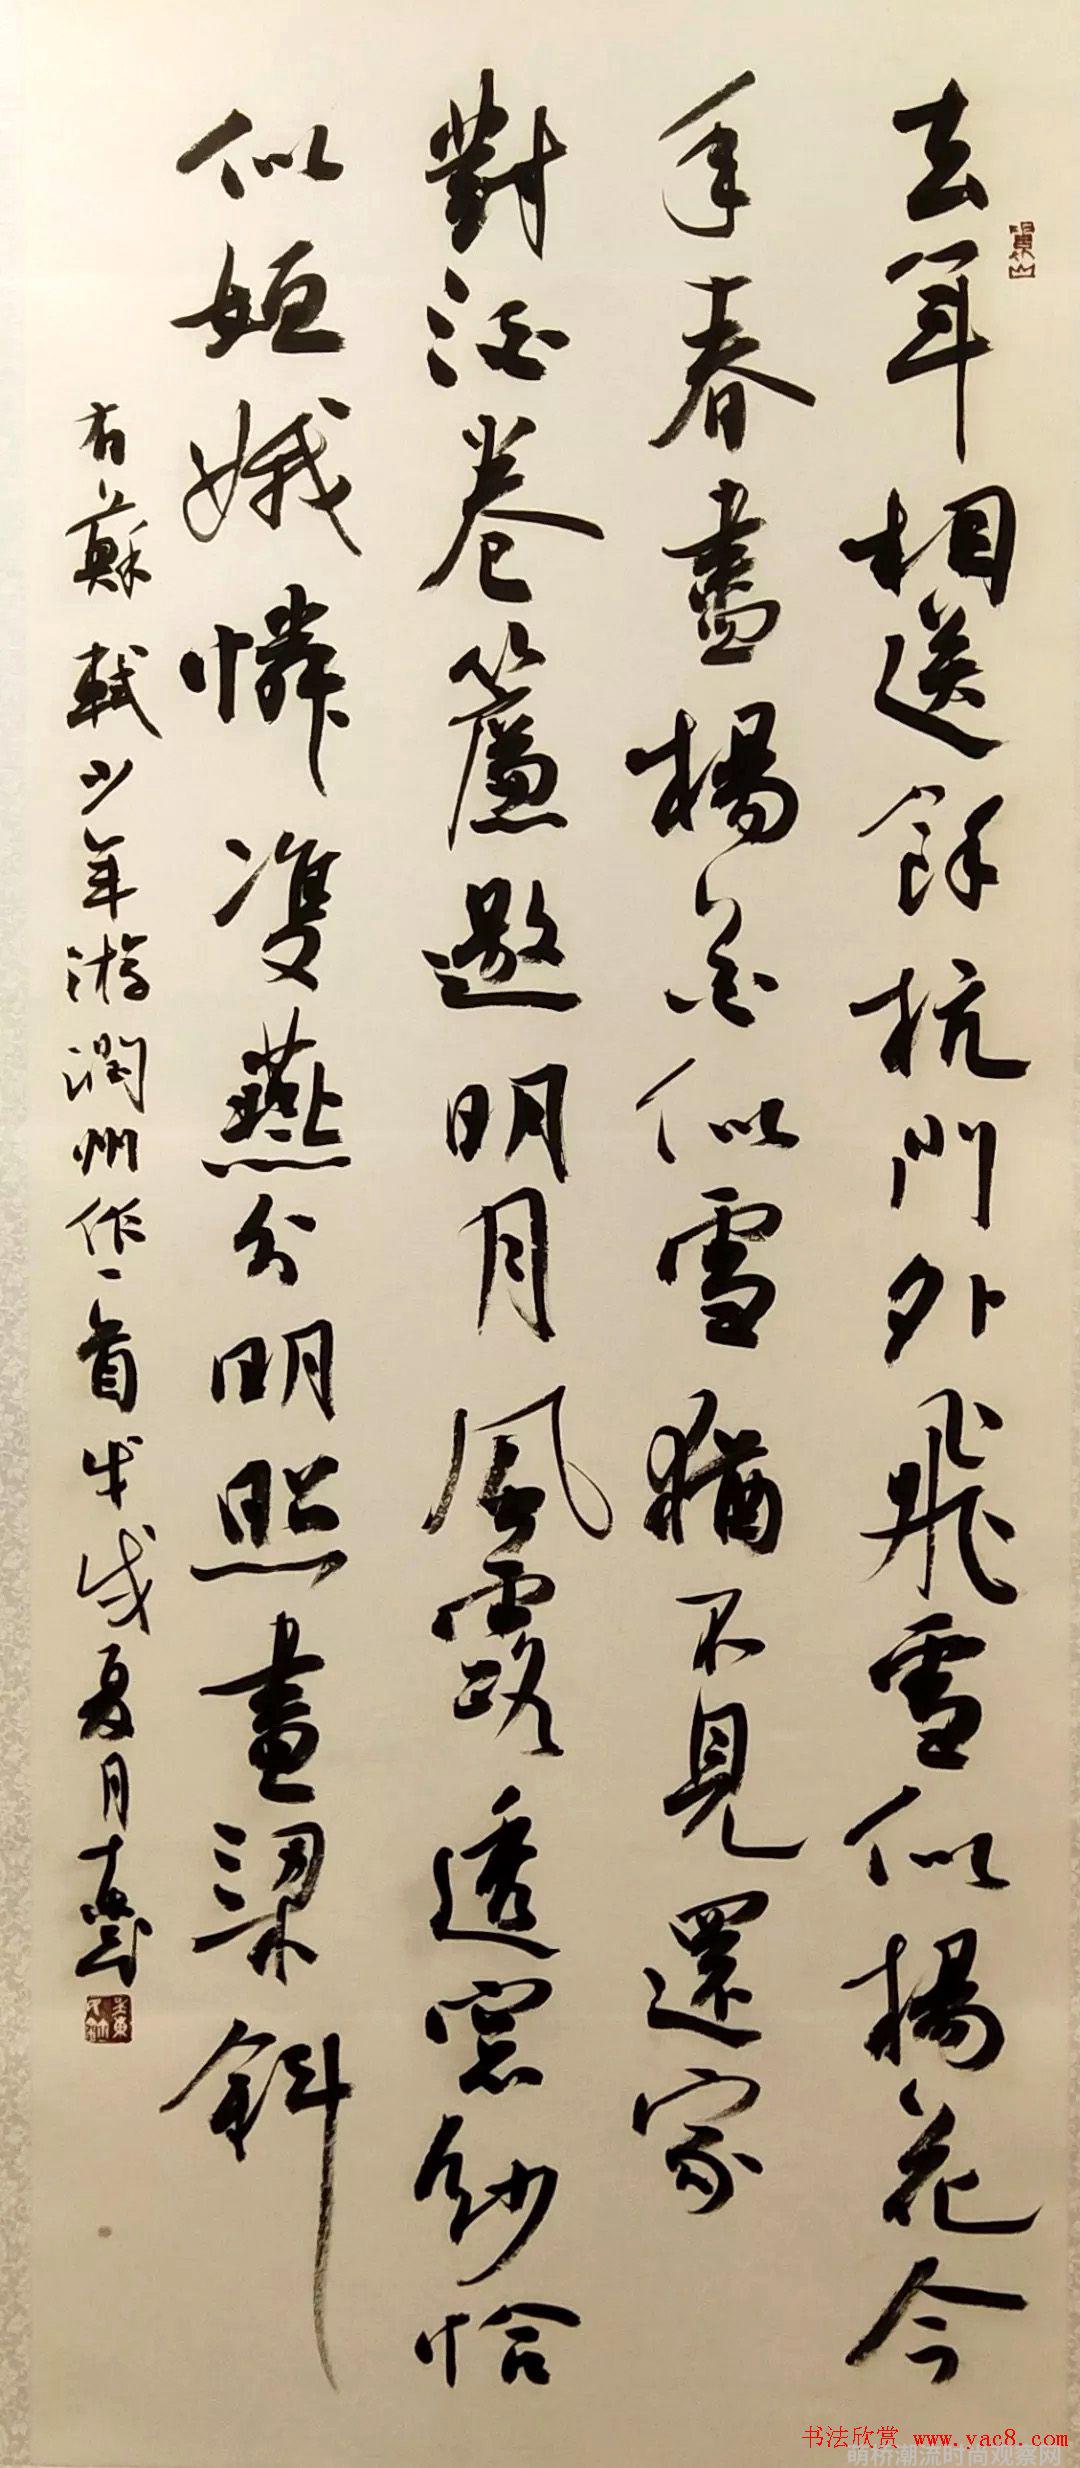 去年相送餘杭門外飛雪似楊花今
年春盡楊花似雪猶不見還家
對酒卷簾邀明月風露透窗紗恰
似姮娥憐雙燕分明照畫梁斜
右蘇軾少年游潤州作一首戊戌夏月
书法欣赏 www.yac8.com
萌桥潮流时尚观察网